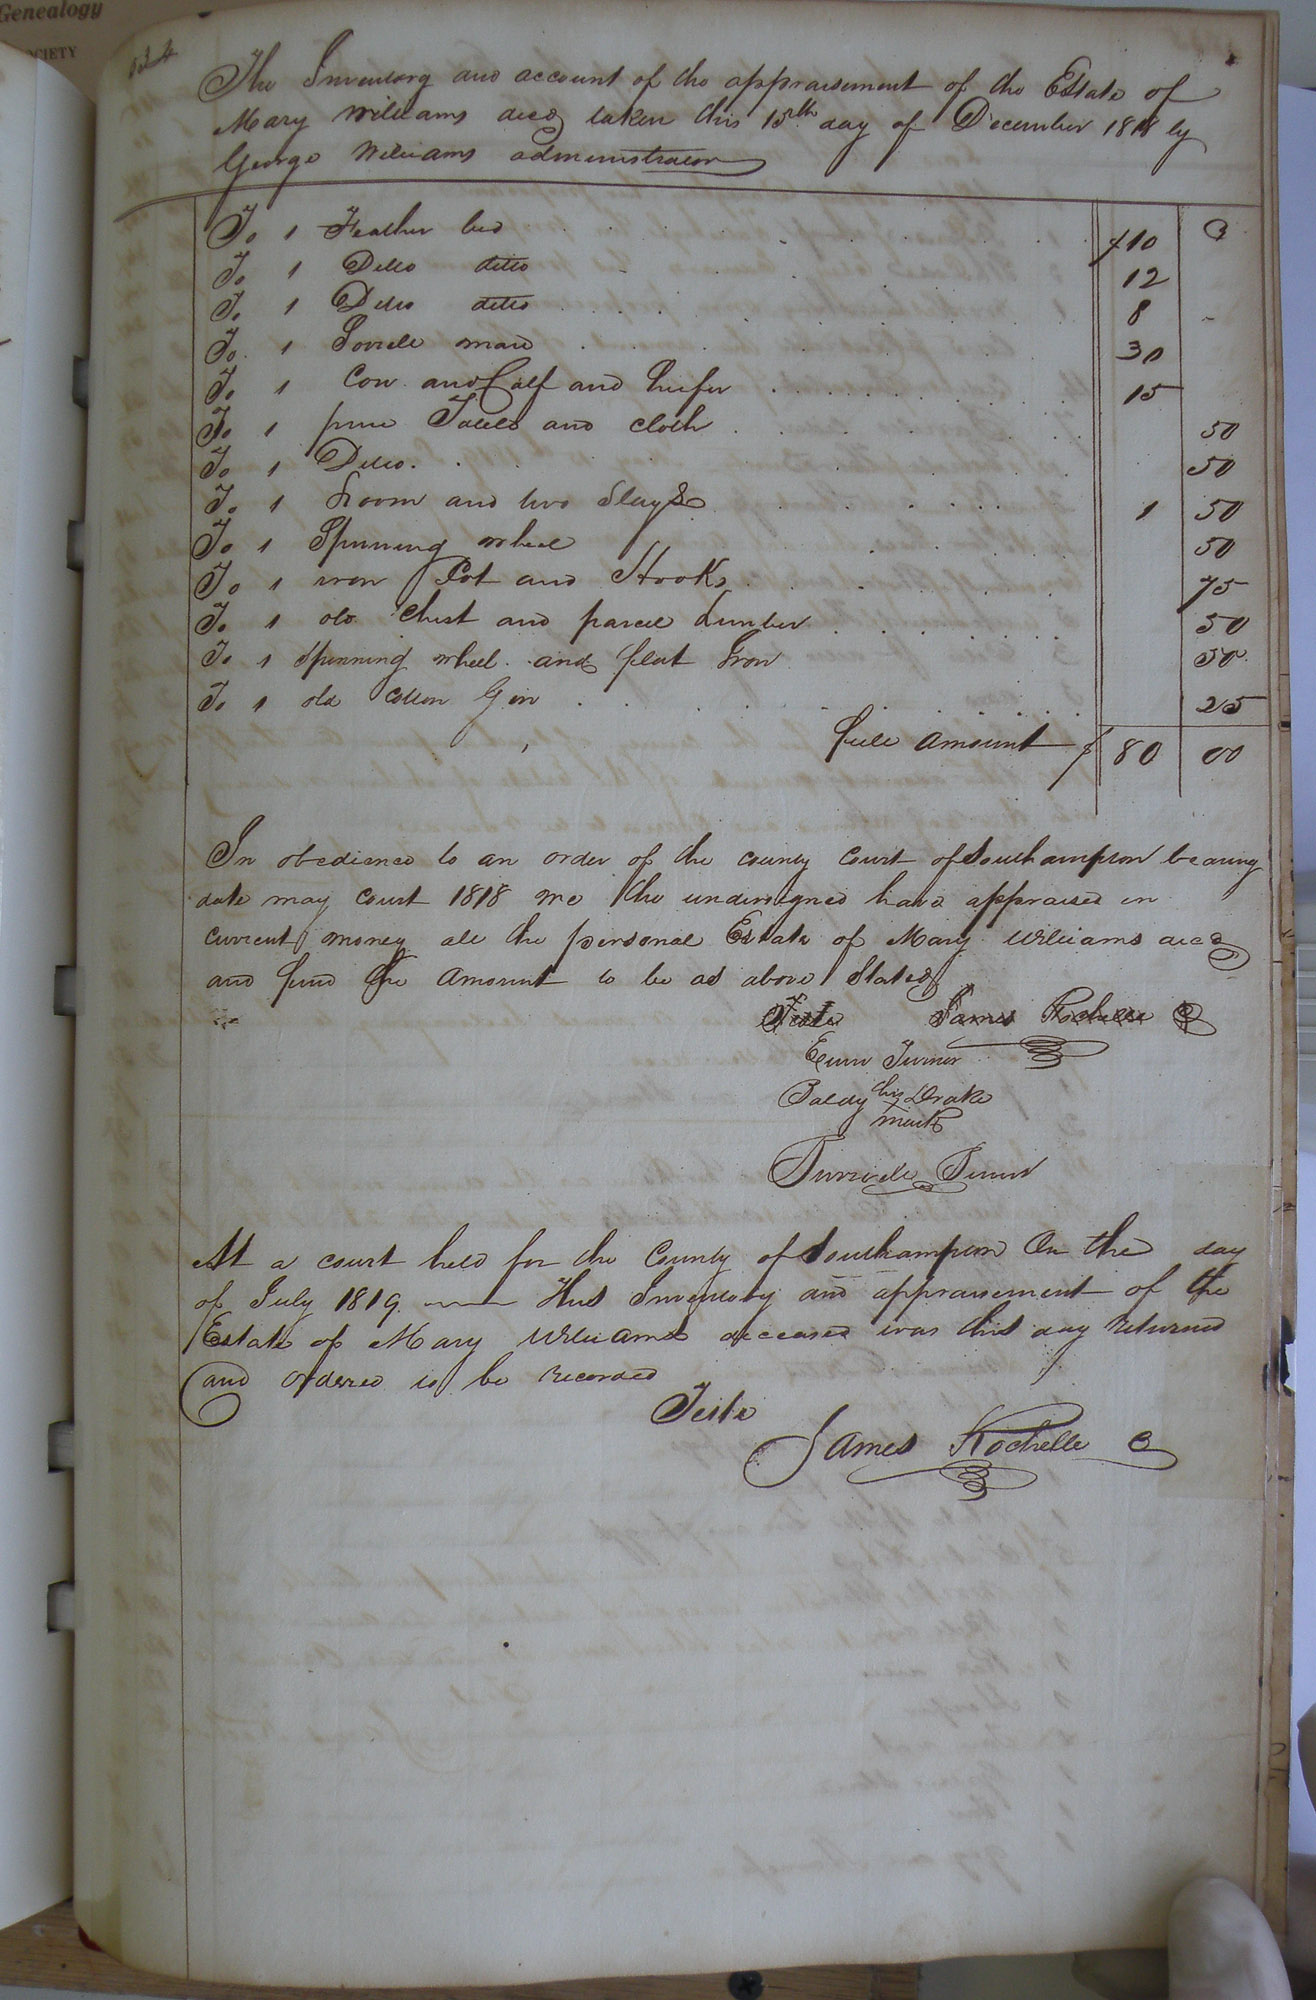 Genealogy
OCIETY
524
The Inventory and account of the appraisement of the Estate of
Mary Williams decd taken this 15th day of December 1818 by
George Williams administrator
To 1 Feather bed $10 C
To 1 Ditto ditto 12
To 1 Ditto ditto 8 -
To 1 Sorrell mare 30
To 1 Cow and Calf and heifer 15
To 1 pine Table and cloth 50
To 1 Ditto 50
To 1 Loom and two Slays 1 50
To 1 Spinning wheel 50
To 1 iron Pot and Hooks 75
To 1 old Chest and parcel Lumber 50
To 1 Spinning wheel and flat Iron 50
To 1 old Cotton Gin 25
full amount $ 80 00
In obedience to an order of the county court of Southampton bearing
date may court 1818 we the undersigned have appraised in
current money all the personal Estate of Mary Williams decd
and find the amount to be as above Stated
Teste James Rochelle C
Turner
Baldy his Drake
mark
At a court held for the County of Southampton On the day
of July 1819 This Inventory and appraisement of the
Estate of Mary Williams deceased was this day returned
and ordered to be recorded
Teste
James Rochelle C